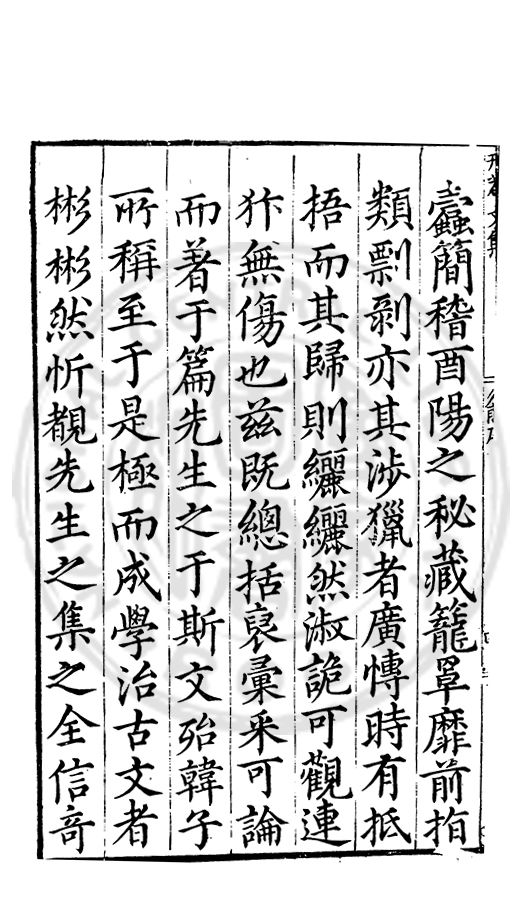 蠹簡稽酉陽之秘藏籠罩靡前指
類剽剝亦其涉獵者廣慱時有抵
捂而其歸則纚纚然淑詭可觀連
犿無傷也茲旣總括裒彙釆可論
而著于篇先生之于斯文殆韓子
所稱至于是極而成學治古文者
彬彬然忻覩先生之集之全信竒